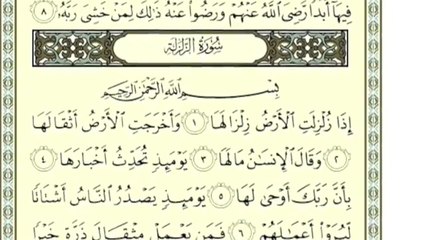 فِيهَآ أَبَدًا رَّضِىَ ٱللَّهُ عَنْهُمْ وَرَضُوا۟ عَنْهُ ذَٰلِكَ لِمَنْ خَشِىَ رَبَّهُۥ ٨
سُورَةُ الزَّلْزَلَةِ
بِسْمِ ٱللَّهِ ٱلرَّحْمَٰنِ ٱلرَّحِيمِ
إِذَا زُلْزِلَتِ ٱلْأَرْضُ زِلْزَالَهَا ١ وَأَخْرَجَتِ ٱلْأَرْضُ أَثْقَالَهَا
٢ وَقَالَ ٱلْإِنسَٰنُ مَا لَهَا ٣ يَوْمَئِذٍ تُحَدِّثُ أَخْبَارَهَا ٤
بِأَنَّ رَبَّكَ أَوْحَىٰ لَهَا ٥ يَوْمَئِذٍ يَصْدُرُ ٱلنَّاسُ أَشْتَاتًا
لِّيُرَوْا۟ أَعْمَٰلَهُمْ ٦ فَمَن يَعْمَلْ مِثْقَالَ ذَرَّةٍ خَيْرًا